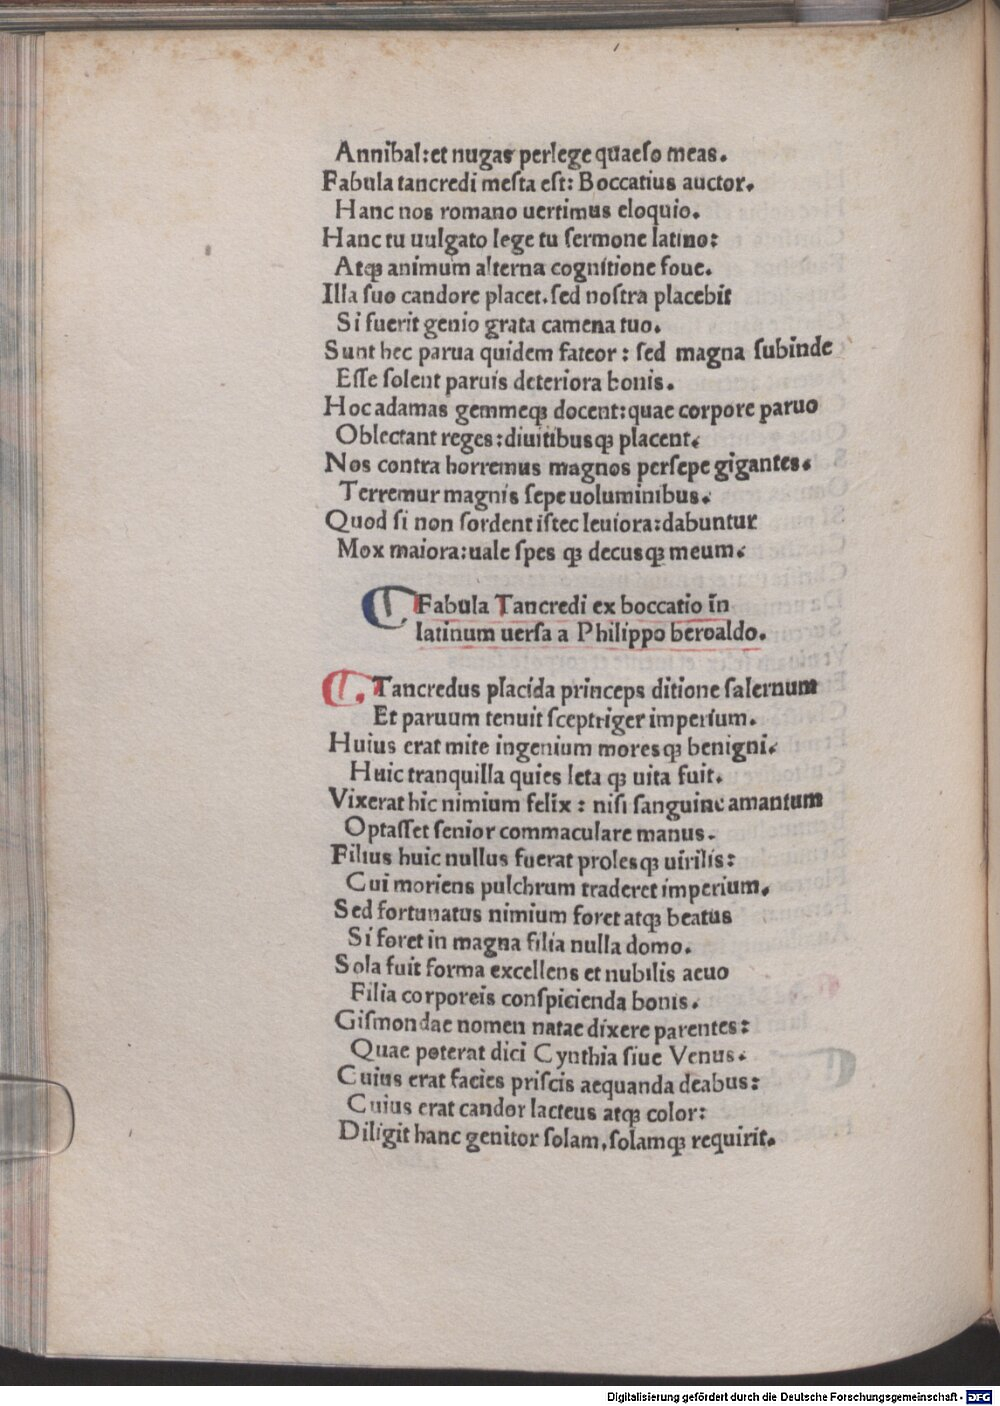 Annibal: et nugas perlege quaeſo meas.
Fabula tancredi meſta eſt: Boccatius auctor.
Hanc nos romano uertimus eloquio.
Hanc tu uulgato lege tu ſermone latino:
Atqꝫ animum alterna cognitione foue.
Illa ſuo candore placet. ſed noſtra placebit
Si fuerit genio grata camena tuo.
Sunt hec parua quidem fateor: ſed magna ſubinde
Eſſe ſolent paruis deteriora bonis.
Hoc adamas gemmeqꝫ docent: quae corpore paruo
Oblectant reges: diuitibusqꝫ placent.
Nos contra horremus magnos perſepe gigantes.
Terremur magnis ſepe uoluminibus.
Quod ſi non ſordent iſtec leuiora: dabuntur
Mox maiora: uale ſpes qꝫ decusqꝫ meum.
Fabula Tancredi ex boccatio in
latinum uerſa a Philippo beroaldo.
Tancredus placida princeps ditione ſalernum
Et paruum tenuit ſceptriger imperium.
Huius erat mite ingenium moresqꝫ benigni.
Huic tranquilla quies leta qꝫ uita fuit.
Vixerat hic nimium felix: niſi ſanguine amantum
Optaſſet ſenior commaculare manus.
Filius huic nullus fuerat prolesqꝫ uirilis:
Cui moriens pulchrum traderet imperium.
Sed fortunatus nimium foret atqꝫ beatus
Si foret in magna filia nulla domo.
Sola fuit forma excellens et nubilis aeuo
Filia corporeis conſpicienda bonis.
Giſmondae nomen natae dixere parentes:
Quae poterat dici Cynthia ſiue Venus.
Cuius erat facies priſcis aequanda deabus:
Cuius erat candor lacteus atqꝫ color:
Diligit hanc genitor ſolam, ſolamqꝫ requirit.
Digitalisierung gefördert durch die Deutsche Forschungsgemeinschaft - DFG